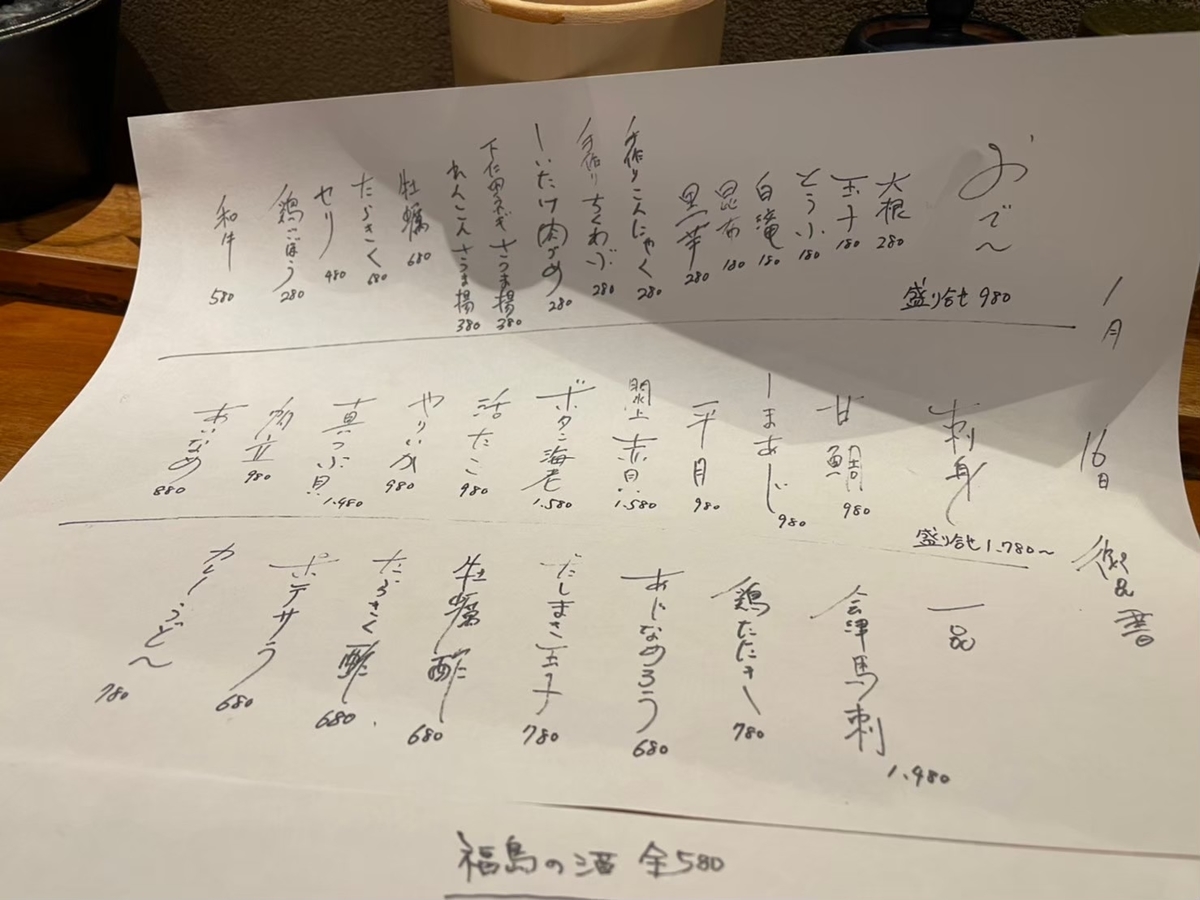 1月 16日 御品書
おでん
盛り合せ 980
大根 280
玉子 180
とうふ 180
白滝 180
昆布 180
黒芋 280
手作りこんにゃく 280
手作りちくわぶ 280
しいたけ肉づめ 280
下仁田ネギさつま揚 380
れんこんさつま揚 380
牡蠣 680
たらきく 680
セリ 480
鶏ごぼう 280
和牛 580
刺身
盛り合せ 1.780〜
甘鯛 980
しまあじ 980
平目 980
閖上 赤貝 1.580
ボタン海老 1.580
活たこ 980
やりいか 980
真つぶ貝 1.480
帆立 980
あいなめ 880
一品
会津馬刺 1.480
鶏たたき 780
あじなめろう 680
だしまき玉子 780
牡蠣酢 680
たらきく酢 680
ポテサラ 680
カレーうどん 780
福島の酒 全580